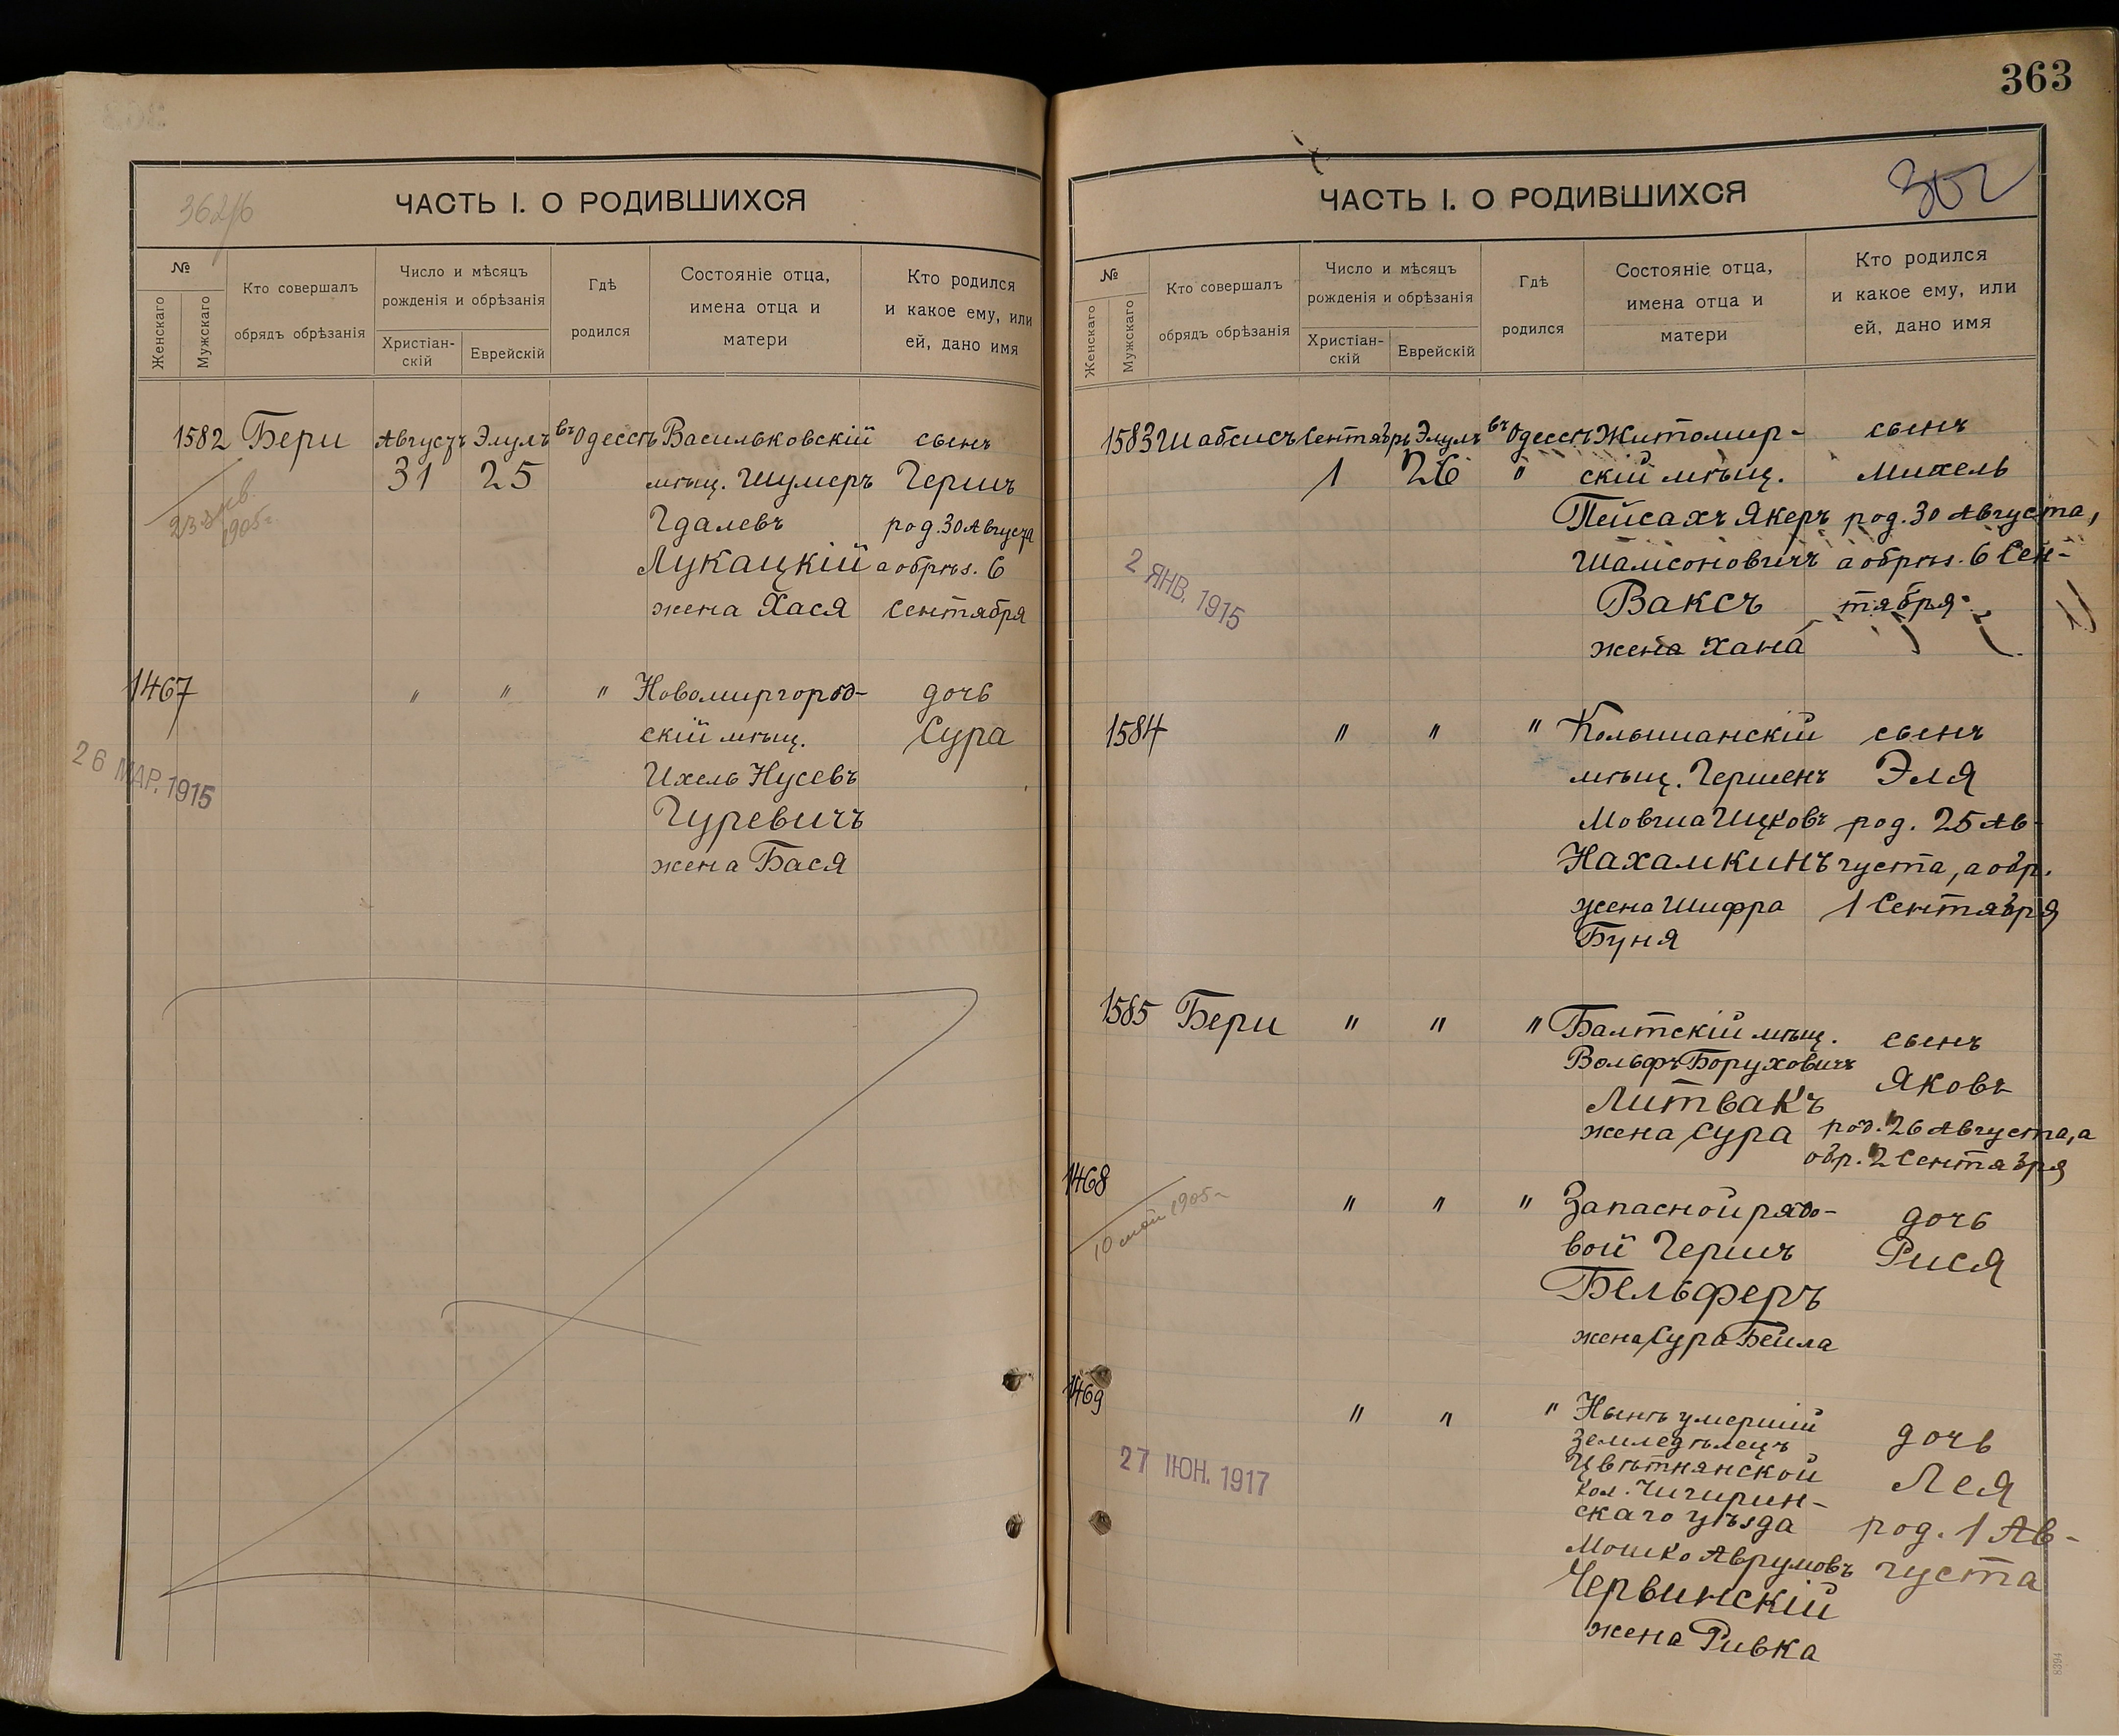 363
362/6
ЧАСТЬ I. О РОДИВШИХСЯ
№
Женскаго
Мужскаго
Кто совершалъ
обрядъ обрѣзанія
Число и мѣсяцъ
рожденія и обрѣзанія
Христіан-
скій
Еврейскій
Гдѣ
родился
Состояніе отца,
имена отца и
матери
Кто родился
и какое ему, или
ей, дано имя
1582 Бери Августъ Элулъ въ Одессѣ Васильковскій сынъ
31 25 мѣщ. Шумеръ Гершъ
Гдалевъ род. 30 Августа
Лукацкій а обрѣз. 6
жена Хася Сентября
1905
1467 " " " Новомиргород- дочь
скій мѣщ. Сура
Ихель Нусевъ
Гуревичъ
жена Бася
26 МАР. 1915
ЧАСТЬ I. О РОДИВШИХСЯ
№
Женскаго
Мужскаго
Кто совершалъ
обрядъ обрѣзанія
Число и мѣсяцъ
рожденія и обрѣзанія
Христіан-
скій
Еврейскій
Гдѣ
родился
Состояніе отца,
имена отца и
матери
Кто родился
и какое ему, или
ей, дано имя
1583 Шабсисъ Сентябрь Элулъ въ Одессѣ Житомир- сынъ
1 26 " скій мѣщ. Михель
Пейсахъ Якеръ род. 30 Августа,
Шамсоновичъ а обрѣз. 6 Сен-
Ваксъ тября
жена Хана
2 ЯНВ. 1915
1584 " " " Колышанскій сынъ
мѣщ. Гершенъ Эля
Мовша Ицковъ род. 25 Ав-
Нахамкинъ густа, а обр.
жена Шифра 1 Сентября
Буня
1585 Бери " " " Балтскій мѣщ. сынъ
Вольфъ Боруховичъ
Яковъ
Литвакъ
жена Сура род. 26 Августа, а
обр. 2 Сентября
1468 " " " Запасной рядо- дочь
вой Гершъ Рися
Бельферъ
жена Сура Бейла
10 май 1905
1469 " " " Нынѣ умершій
земледѣлецъ дочь
Цвѣтнянской
кол. Чигирин- Лея
скаго уѣзда род. 1 Ав-
Мошко Аврумовъ густа
Червинскій
жена Ривка
27 ІЮН. 1917
8394